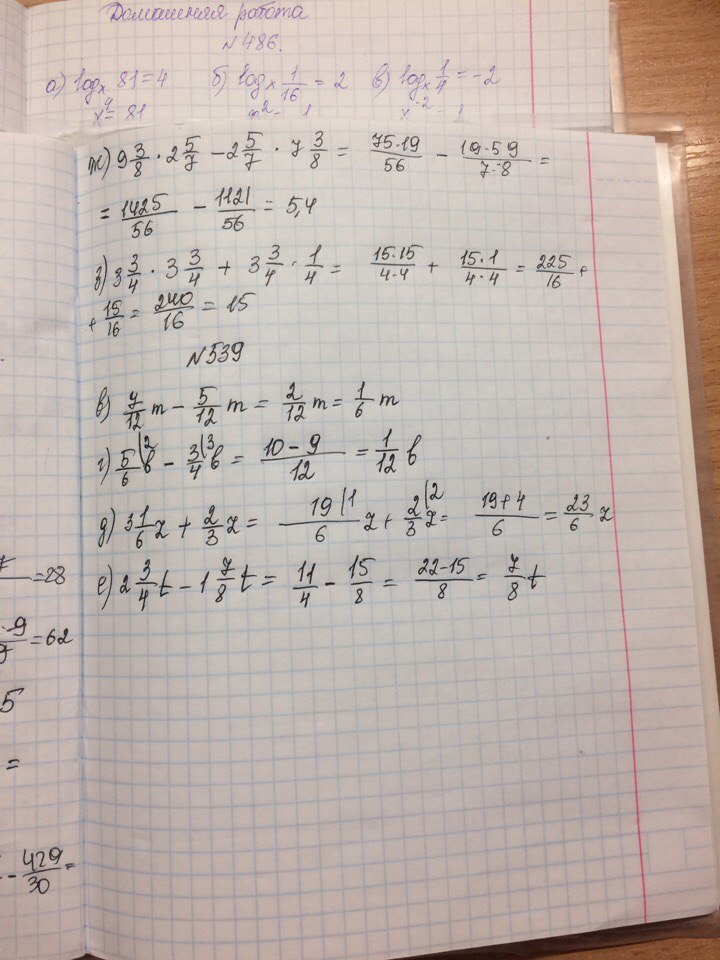 Домашняя работа
№486.
а) logₓ 81 = 4 б) logₓ 1/16 = 2 в) logₓ 1/4 = -2
x⁴ = 81 x² = 1 x⁻² = 1
ж) 9 3/8 · 2 5/7 - 2 5/7 · 7 3/8 = 75·19/56 - 19·59/7·8 =
= 1425/56 - 1121/56 = 5,4
з) 3 3/4 · 3 3/4 + 3 3/4 · 1/4 = 15·15/4·4 + 15·1/4·4 = 225/16 +
+ 15/16 = 240/16 = 15
№539
в) 7/12 m - 5/12 m = 2/12 m = 1/6 m
г) 5/6 |2 b - 3/4 |3 b = 10-9/12 = 1/12 b
д) 3 1/6 z + 2/3 z = 19 |1/6 z + 2/3 |2 z = 19+4/6 = 23/6 z
е) 2 3/4 t - 1 7/8 t = 11/4 - 15/8 = 22-15/8 = 7/8 t
= 28
·9/9 = 62
5
=
- 429/30 =